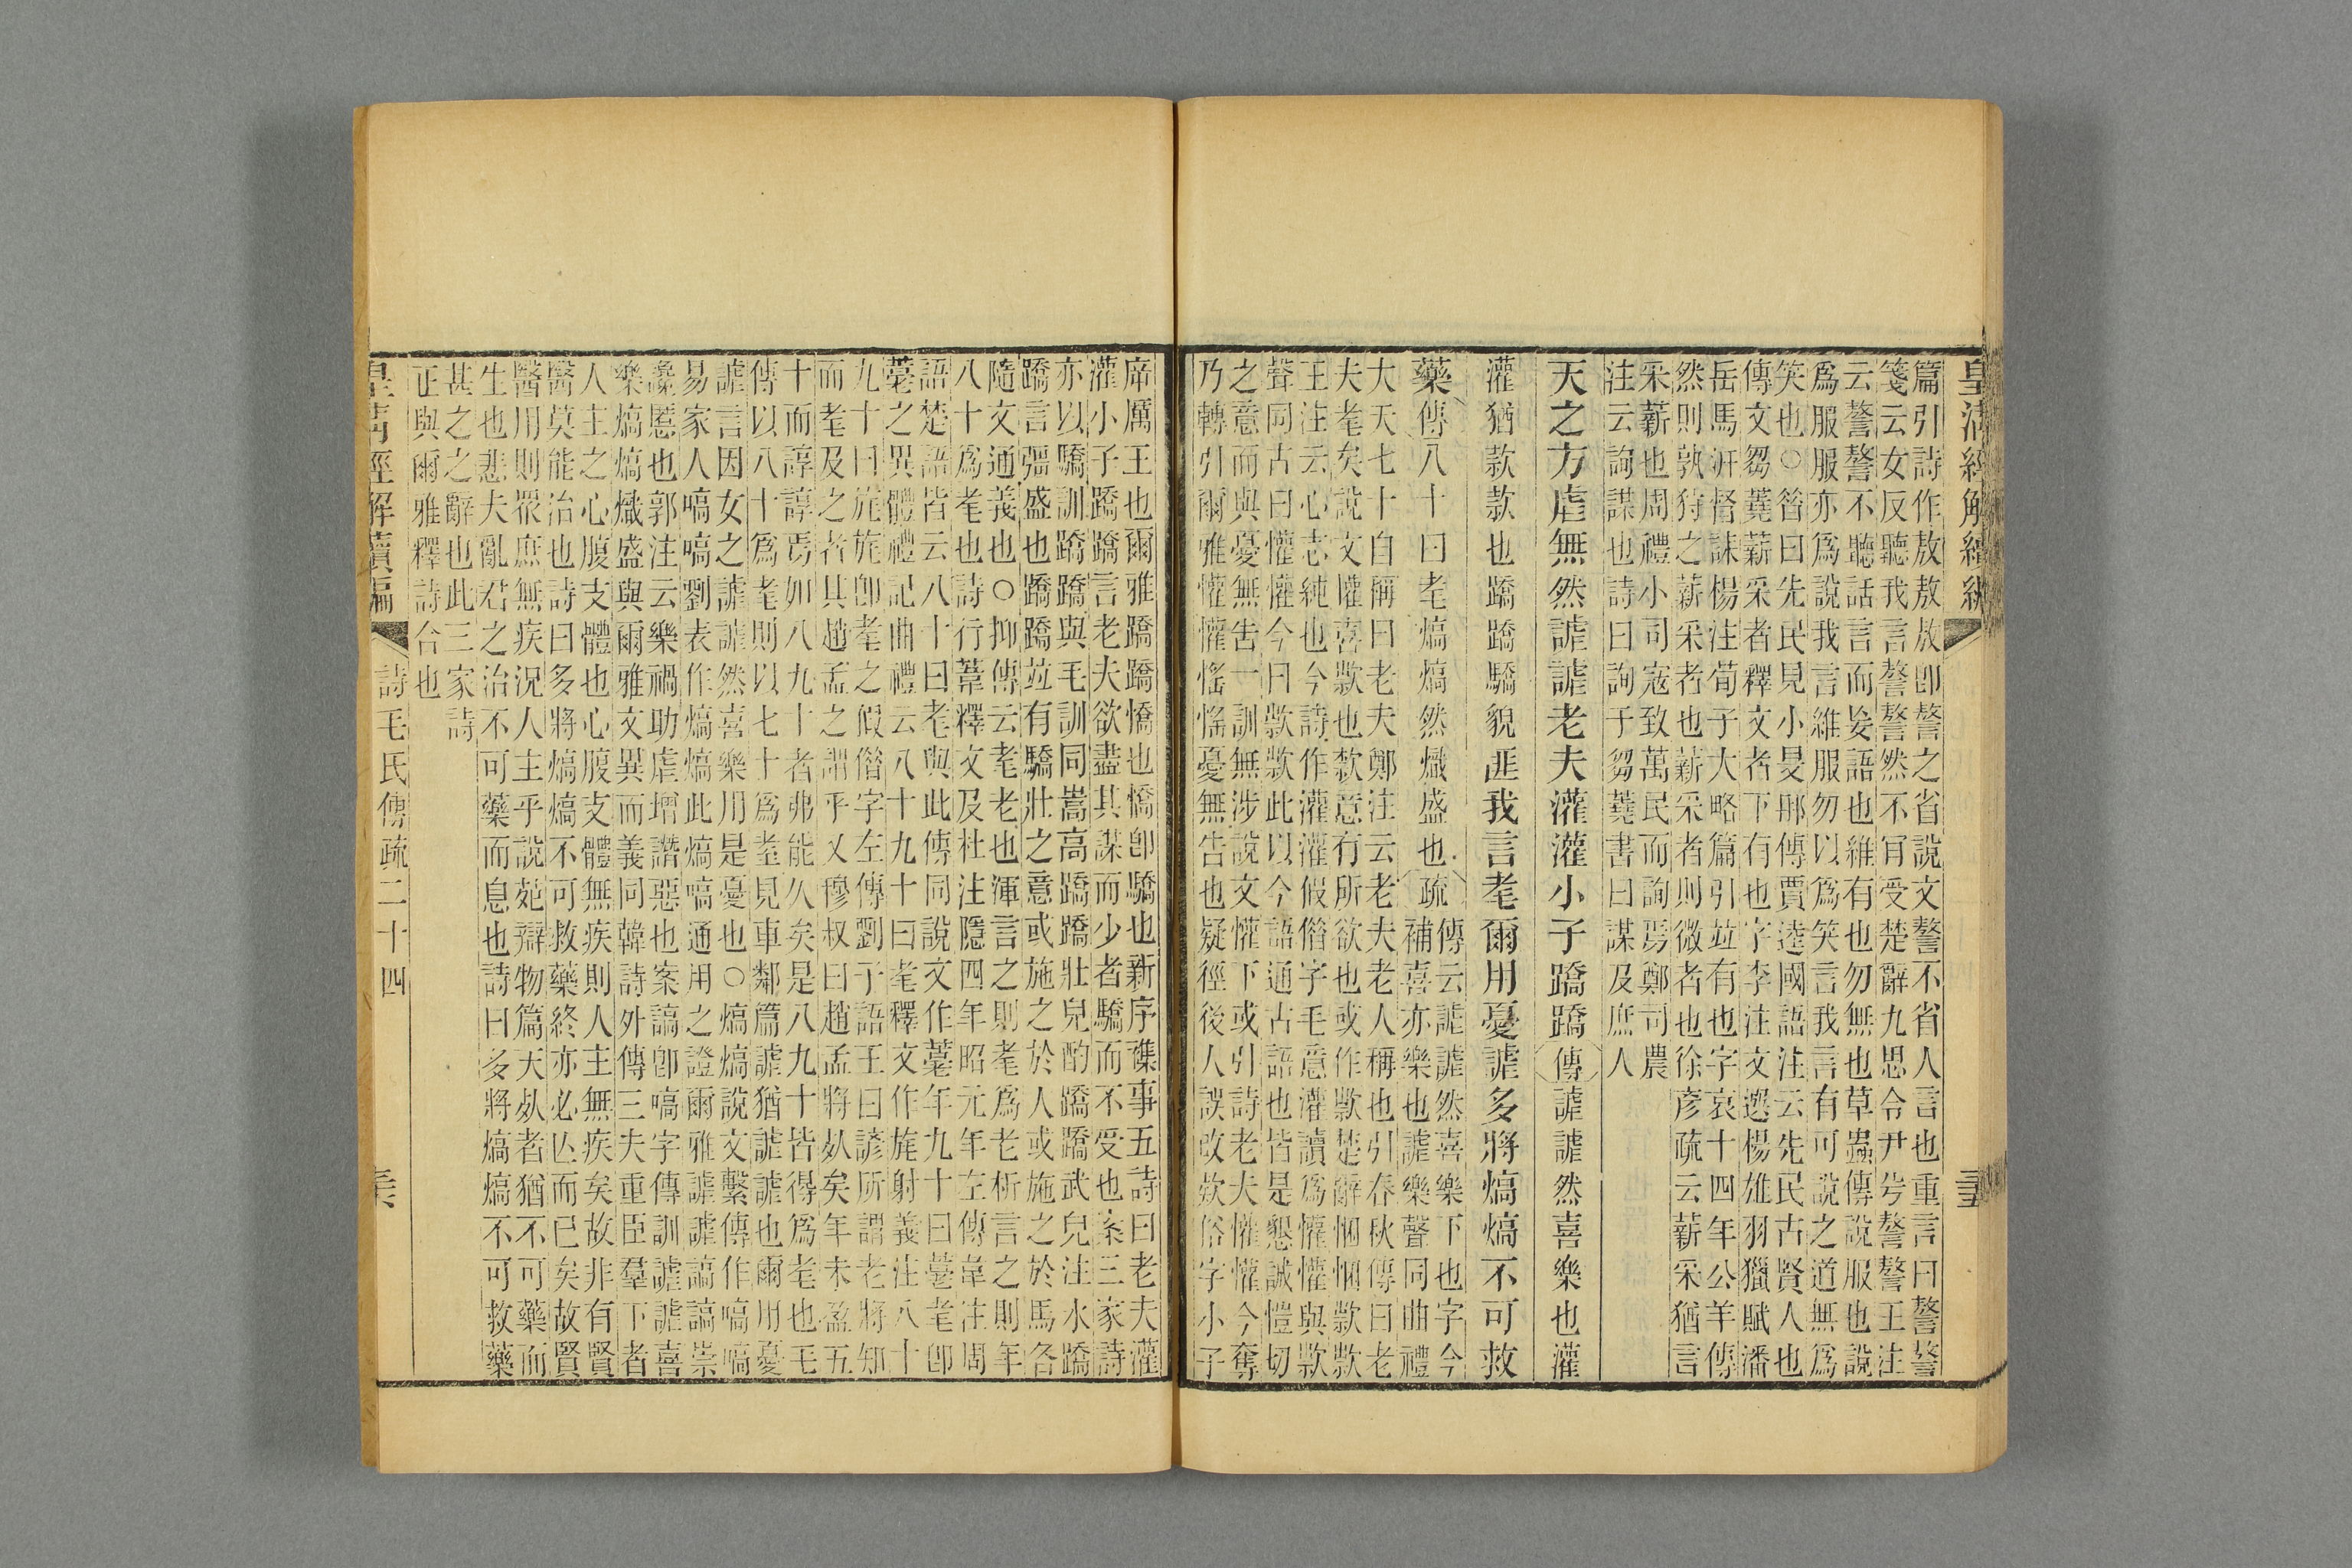 皇清經解續編
篇引詩作敖敖卽謷之省說文謷不省人言也重言曰謷謷
箋云女反聽我言謷謷然不肎受楚辭九思令尹兮謷謷王注
云謷謷不聽話言而妄語也維有也勿無也草蟲傳說服也說
爲服服亦爲說我言維服勿以爲笑言我言有可說之道無爲
笑也○昝曰先民見小旻邢傳賈逵國語注云先民古賢人也
傳文芻蕘薪采者釋文者下有也字李注文選楊雄羽獵賦潘
岳馬汧督誄楊注荀子大略篇引竝有也字哀十四年公羊傳
然則孰狩之薪采者也薪采者則微者也徐彥疏云薪采猶言
采薪也周禮小司寇致萬民而詢焉鄭司農
注云詢謀也詩曰詢于芻蕘書曰謀及庶人
天之方虐無然謔謔老夫灌灌小子蹻蹻傳謔謔然喜樂也灌
灌猶款款也蹻蹻驕貌匪我言耄爾用憂謔多將熇熇不可救
藥傳八十曰耄熇熇然熾盛也疏
傳云謔謔然喜樂下也字今
補喜亦樂也謔樂聲同曲禮
大夫七十自稱曰老夫鄭注云老夫老人稱也引春秋傳曰老
夫耄矣說文懽喜歀也欵意有所欲也或作歀楚辭悃悃歀歀
王注云心志純也今詩作灌灌假借字毛意灌讀爲懽懽與歀
聲同古曰懽懽今曰歀歀此以今語通古語也皆是懇誠愷切
之意而與憂無告一訓無涉說文懽下或引詩老夫懽懽今奪
乃轉引爾雅懽懽愮愮憂無告也疑徑後人誤改欵俗字小子
席厲王也爾雅蹻蹻憍也憍卽驕也新序雜事五詩曰老夫灌
灌小子蹻蹻言老夫欲盡其謀而少者驕而不受也案三家詩
亦以驕訓蹻蹻與毛訓同嵩高蹻蹻壯皃酌蹻蹻武皃注水蹻
蹻言彊盛也蹻蹻竝有驕壯之意或施之於人或施之於馬各
隨文通義也○抑傳云耄老也渾言之則耄爲老析言之則年
八十爲耄也詩行葦釋文及杜注隱四年昭元年左傳韋注周
語楚語皆云八十曰耄與此傳同說文作薹年九十曰薹耄卽
薹之異體禮記曲禮云八十九十曰耄釋文作旄射義注八十
九十曰旄旄卽耄之假借字左傳劉子語王曰諺所謂老將知
而耄及之者其趙孟之謂乎又穆叔曰趙孟將夗矣年未盈五
十而諄諄焉如八九十者弗能久矣是八九十皆得爲耄也毛
傳以八十爲耄則以七十爲耋見車鄰篇謔猶謔也爾用憂
謔言因女之謔謔然喜樂用是憂也○熇熇說文繫傳作嗃嗃
易家人嗃嗃劉表作熇熇此熇嗃通用之證爾雅謔謔謞謞崇
讒慝也郭注云樂禍助虐增譖惡也案謞卽嗃字傳訓謔謔喜
樂熇熇熾盛與爾雅文異而義同韓詩外傳三夫重臣羣下者
人主之心腹支體也心腹支體無疾則人主無疾矣故非有賢
醫莫能治也詩曰多將熇熇不可救藥終亦必亾而已矣故賢
醫用則眾庶無疾況人主乎說苑辯物篇夫夗者猶不可藥而
生也悲夫亂君之治不可藥而息也詩曰多將熇熇不可救藥
甚之之辭也此三家詩
正與爾雅釋詩合也
皇清經解續編
詩毛氏傳疏二十四